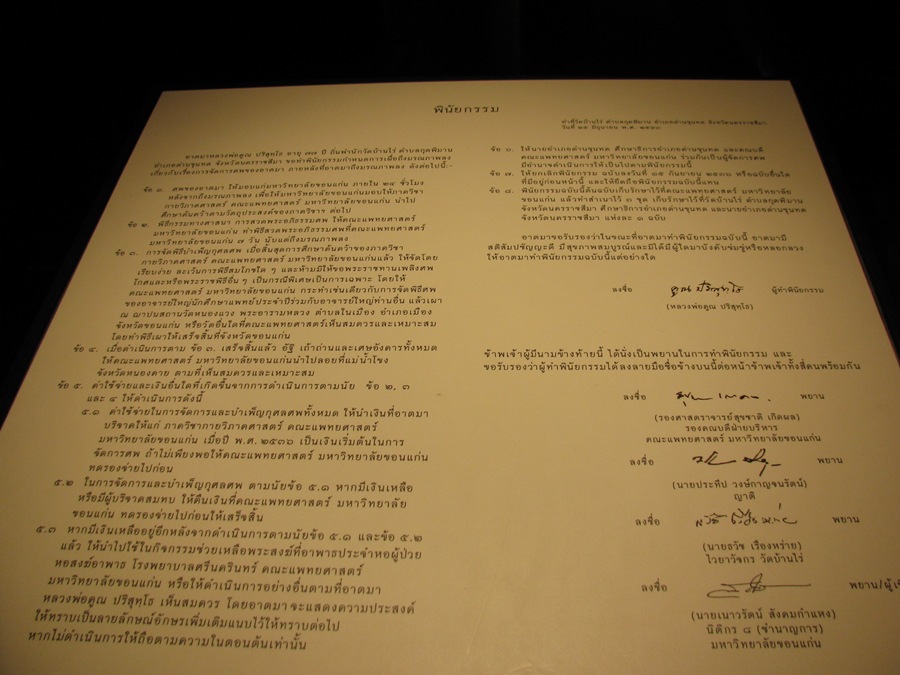 พินัยกรรม
ทำที่วัดบ้านไร่ ตำบลกุดพิมาน อำเภอด่านขุนทด จังหวัดนครราชสีมา
วันที่ ๒๕ มิถุนายน พ.ศ. ๒๕๔๓
อาตมาหลวงพ่อคูณ ปริสุทฺโธ อายุ ๗๗ ปี ถิ่นพำนักวัดบ้านไร่ ตำบลกุดพิมาน
อำเภอด่านขุนทด จังหวัดนครราชสีมา ขอทำพินัยกรรมกำหนดการเผื่อถึงมรณภาพลง
เกี่ยวกับเรื่องการจัดการงานศพของอาตมา ภายหลังที่อาตมาถึงมรณภาพลง ดังต่อไปนี้.-
ข้อ ๑. ศพของอาตมา ให้มอบแก่มหาวิทยาลัยขอนแก่น ภายใน ๒๔ ชั่วโมง
หลังจากถึงมรณภาพลง เพื่อให้มหาวิทยาลัยขอนแก่นมอบให้ภาควิชา
กายวิภาคศาสตร์ คณะแพทยศาสตร์ มหาวิทยาลัยขอนแก่น นำไป
ศึกษาค้นคว้าตามวัตถุประสงค์ของภาควิชาฯ ต่อไป
ข้อ ๒. พิธีกรรมทางศาสนา การสวดพระอภิธรรมศพ ให้คณะแพทยศาสตร์
มหาวิทยาลัยขอนแก่น ทำพิธีสวดพระอภิธรรมศพที่คณะแพทยศาสตร์
มหาวิทยาลัยขอนแก่น ๗ วัน นับแต่ถึงมรณภาพลง
ข้อ ๓. การจัดพิธีบำเพ็ญกุศลศพ เมื่อสิ้นสุดการศึกษาค้นคว้าของภาควิชา
กายวิภาคศาสตร์ คณะแพทยศาสตร์ มหาวิทยาลัยขอนแก่นแล้ว ให้จัดโดย
เรียบง่าย ละเว้นการพิธีสมโภชใด ๆ และห้ามมิให้ขอพระราชทานเพลิงศพ
โกศและหรือพระราชพิธีอื่น ๆ เป็นกรณีพิเศษเป็นการเฉพาะ โดยให้
คณะแพทยศาสตร์ มหาวิทยาลัยขอนแก่น กระทำเช่นเดียวกับการจัดพิธีศพ
ของอาจารย์ใหญ่นักศึกษาแพทย์ประจำปีร่วมกับอาจารย์ใหญ่ท่านอื่น แล้วเผา
ณ ฌาปนสถานวัดหนองแวง พระอารามหลวง ตำบลในเมือง อำเภอเมือง
จังหวัดขอนแก่น หรือวัดอื่นใดที่คณะแพทยศาสตร์เห็นสมควรและเหมาะสม
โดยทำพิธีเผาให้เสร็จสิ้นที่จังหวัดขอนแก่น
ข้อ ๔. เมื่อดำเนินการตาม ข้อ ๓. เสร็จสิ้นแล้ว อัฐิ เถ้าถ่านและเศษอังคารทั้งหมด
ให้คณะแพทยศาสตร์ มหาวิทยาลัยขอนแก่นนำไปลอยที่แม่น้ำโขง
จังหวัดหนองคาย ตามที่เห็นสมควรและเหมาะสม
ข้อ ๕. ค่าใช้จ่ายและเงินอื่นใดที่เกิดขึ้นจากการดำเนินการตามนัย ข้อ ๒, ๓
และ ๔ ให้ดำเนินการดังนี้
๕.๑ ค่าใช้จ่ายในการจัดการและบำเพ็ญกุศลศพทั้งหมด ให้นำเงินที่อาตมา
บริจาคให้แก่ ภาควิชากายวิภาคศาสตร์ คณะแพทยศาสตร์
มหาวิทยาลัยขอนแก่น เมื่อปี พ.ศ. ๒๕๓๖ เป็นเงินเริ่มต้นในการ
จัดการศพ ถ้าไม่เพียงพอให้คณะแพทยศาสตร์ มหาวิทยาลัยขอนแก่น
ทดรองจ่ายไปก่อน
๕.๒ ในการจัดการและบำเพ็ญกุศลศพ ตามนัยข้อ ๕.๑ หากมีเงินเหลือ
หรือมีผู้บริจาคสมทบ ให้คืนเงินที่คณะแพทยศาสตร์ มหาวิทยาลัย
ขอนแก่น ทดรองจ่ายไปก่อนให้เสร็จสิ้น
๕.๓ หากมีเงินเหลืออยู่อีกหลังจากดำเนินการตามนัยข้อ ๕.๑ และข้อ ๕.๒
แล้ว ให้นำไปใช้ในกิจกรรมช่วยเหลือพระสงฆ์ที่อาพาธประจำหอผู้ป่วย
หอสงฆ์อาพาธ โรงพยาบาลศรีนครินทร์ คณะแพทยศาสตร์
มหาวิทยาลัยขอนแก่น หรือให้ดำเนินการอย่างอื่นตามที่อาตมา
หลวงพ่อคูณ ปริสุทฺโธ เห็นสมควร โดยอาตมาจะแสดงความประสงค์
ให้ทราบเป็นลายลักษณ์อักษรเพิ่มเติมแนบไว้ให้ทราบต่อไป
หากไม่ดำเนินการให้ถือตามความในตอนต้นเท่านั้น
ข้อ ๖. ให้นายอำเภอด่านขุนทด ศึกษาธิการอำเภอด่านขุนทด และคณบดี
คณะแพทยศาสตร์ มหาวิทยาลัยขอนแก่น ร่วมกันเป็นผู้จัดการศพ
มีอำนาจดำเนินการให้เป็นไปตามพินัยกรรมนี้
ข้อ ๗. ให้ยกเลิกพินัยกรรม ฉบับลงวันที่ ๑๙ กันยายน ๒๕๓๖ หรือฉบับอื่นใด
ที่มีอยู่ก่อนหน้านี้ และให้ยึดถือพินัยกรรมฉบับนี้แทน
ข้อ ๘. พินัยกรรมฉบับนี้ต้นฉบับเก็บรักษาไว้ที่คณะแพทยศาสตร์ มหาวิทยาลัย
ขอนแก่น แล้วทำสำเนาไว้ ๓ ชุด เก็บรักษาไว้ที่วัดบ้านไร่ ตำบลกุดพิมาน
จังหวัดนครราชสีมา ศึกษาธิการอำเภอด่านขุนทด และนายอำเภอด่านขุนทด
จังหวัดนครราชสีมา แห่งละ ๑ ฉบับ
อาตมาขอรับรองว่าในขณะที่อาตมาทำพินัยกรรมฉบับนี้ อาตมามี
สติสัมปชัญญะดี มีสุขภาพสมบูรณ์และมิได้มีผู้ใดมาบังคับข่มขู่หรือหลอกลวง
ให้อาตมาทำพินัยกรรมฉบับนี้แต่อย่างใด
ลงชื่อ คูณ ปริสุทฺโธ ผู้ทำพินัยกรรม
(หลวงพ่อคูณ ปริสุทฺโธ)
ข้าพเจ้าผู้มีนามข้างท้ายนี้ ได้นั่งเป็นพยานในการทำพินัยกรรม และ
ขอรับรองว่าผู้ทำพินัยกรรมได้ลงลายมือชื่อข้างบนนี้ต่อหน้าข้าพเจ้าทั้งสี่คนพร้อมกัน
ลงชื่อ พยาน
(รองศาสตราจารย์สุชชาติ เกิดผล)
รองคณบดีฝ่ายบริหาร
คณะแพทยศาสตร์ มหาวิทยาลัยขอนแก่น
ลงชื่อ พยาน
(นายประทีป วงษ์กาญจนรัตน์)
ญาติ
ลงชื่อ พยาน
(นายธวัช เรืองหร่าย)
ไวยาวัจกร วัดบ้านไร่
ลงชื่อ พยาน/ผู้เขี
(นายเนาวรัตน์ สังคมกำแหง)
นิติกร ๘ (ชำนาญการ)
มหาวิทยาลัยขอนแก่น